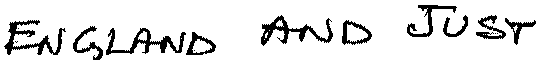 ENGLAND AND JUST